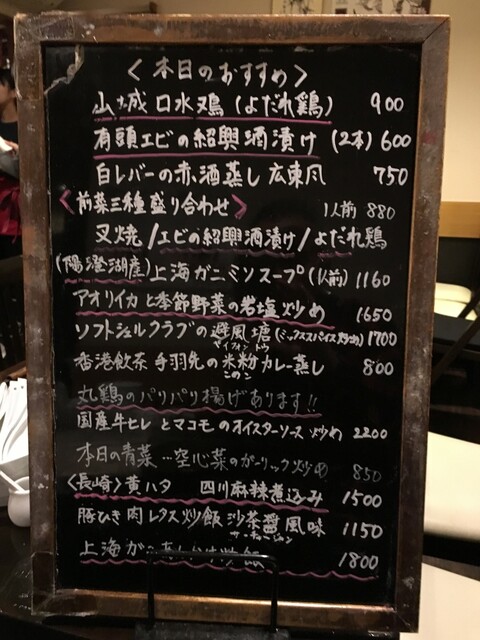 <本日のおすすめ>
山城口水鶏(よだれ鶏) 900
有頭エビの紹興酒漬け(2本)600
白レバーの赤酒蒸し広東風 750
<前菜三種盛り合わせ> 1人前 880
叉焼/エビの紹興酒漬け/よだれ鶏
(陽澄湖産)上海ガニミソスープ(1人前)1160
アオリイカと季節野菜の岩塩炒め 1650
ソフトシェルクラブの避風塘(ミックススパイス炒め)1700
ペイフォントン
香港飲茶 手羽先の米粉カレー蒸し 800
丸鶏のパリパリ揚げあります!!
国産牛ヒレとマコモのオイスターソース炒め 2200
本日の青菜…空心菜のガーリック炒め 850
<長崎>黄ハタ 四川麻辣煮込み 1500
豚ひき肉レタス炒飯 沙茶醤風味 1150
サーチャージャン
上海ガニ 1800